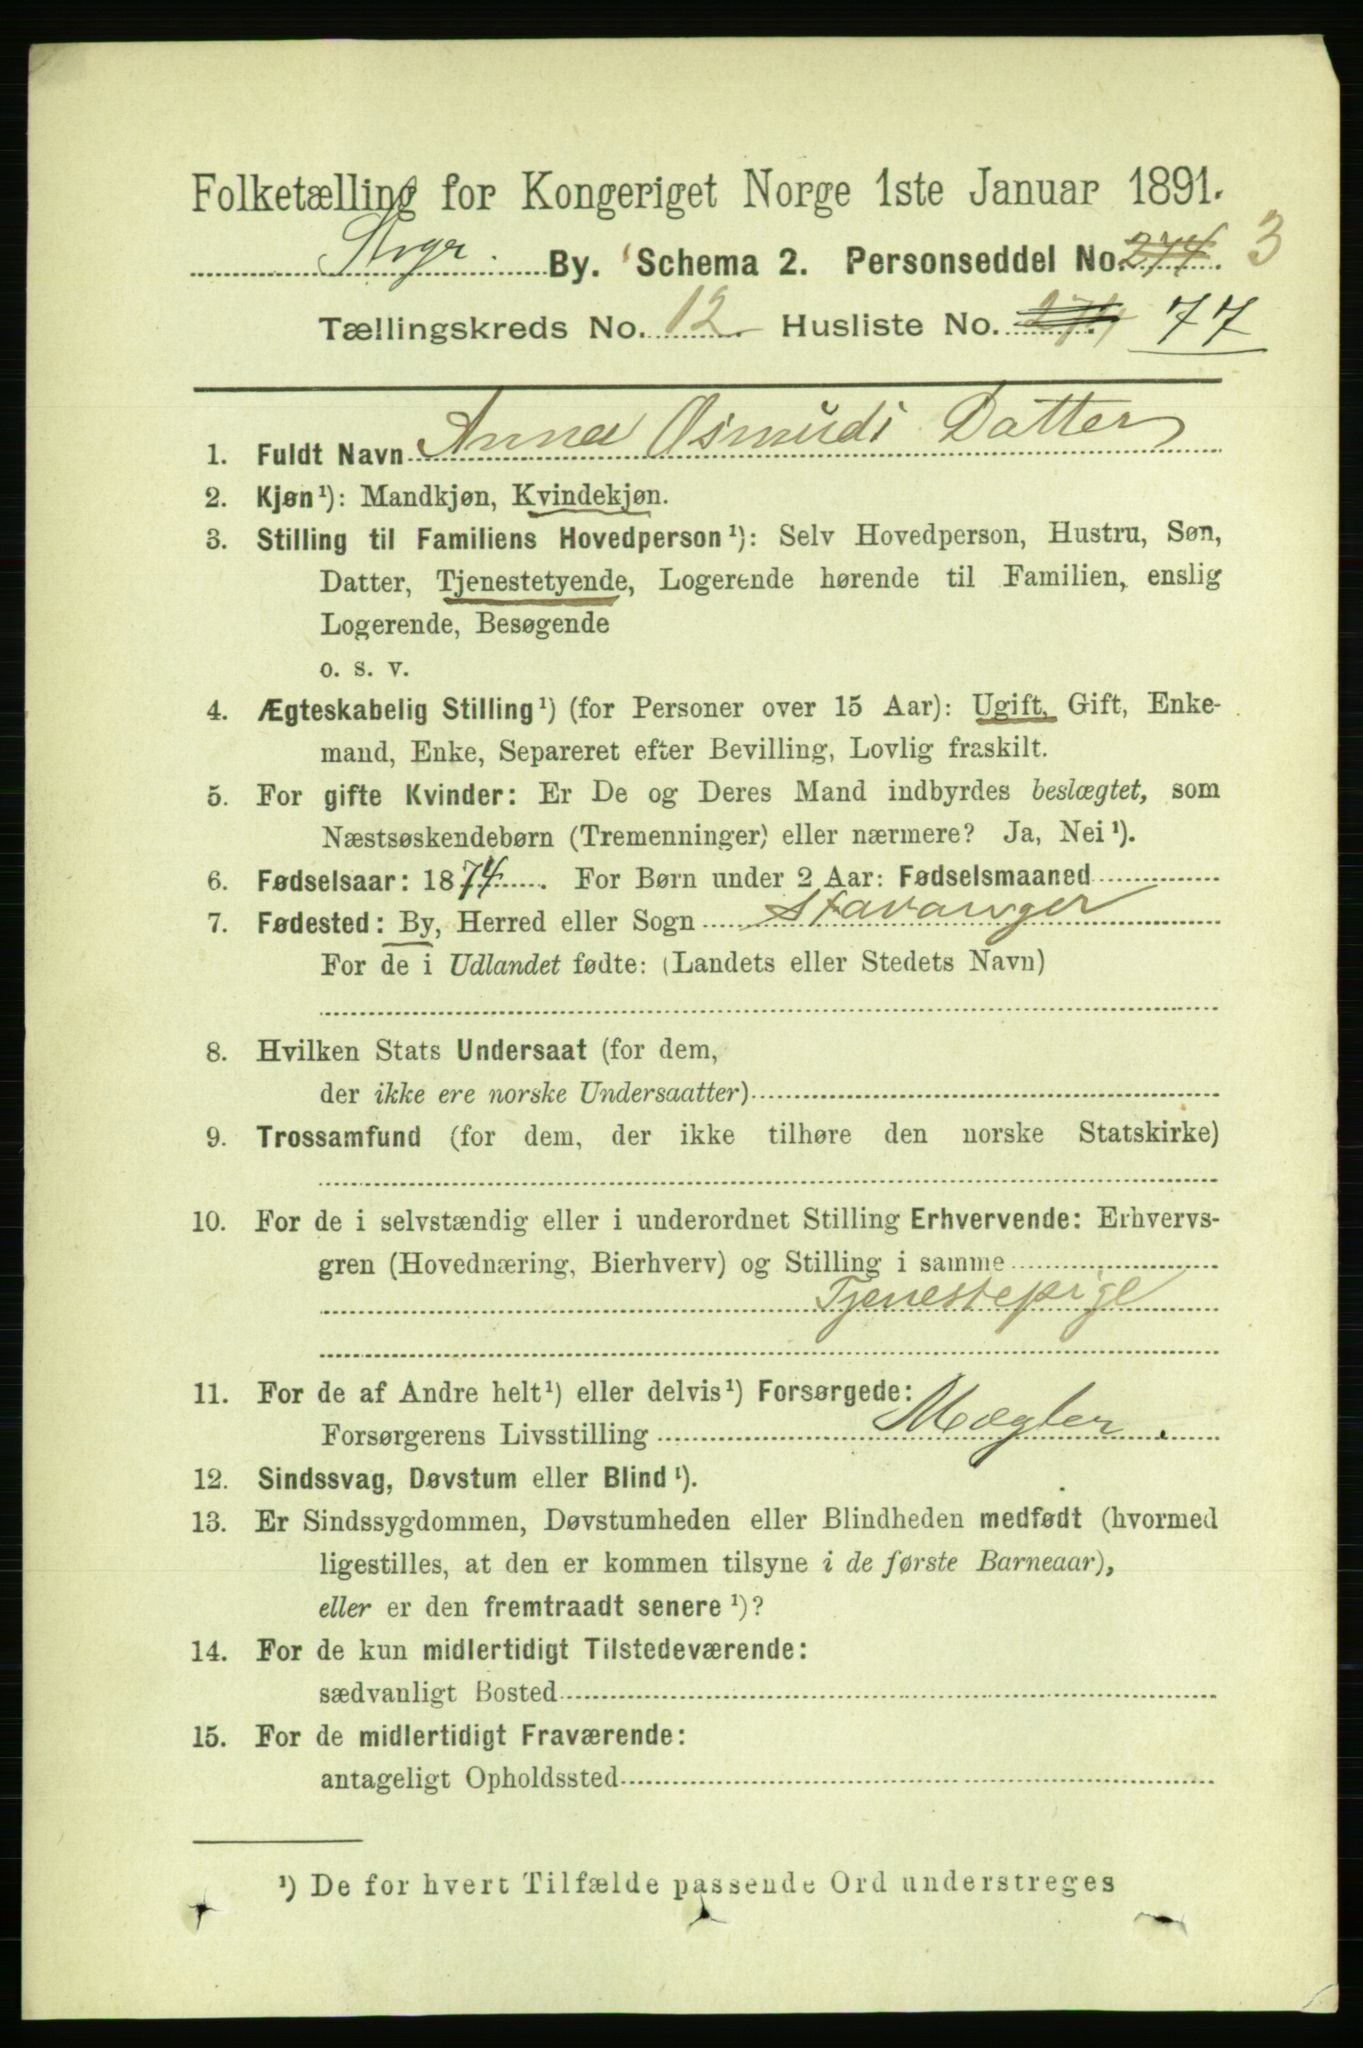 Folketælling for Kongeriget Norge 1ste Januar 1891.
Svgr. By. Schema 2. Personseddel No. 274. 3
Tællingskreds No. 12. Husliste No. 274 77
1. Fuldt Navn Anna Osmudi Datter
2. Kjøn¹): Mandkjøn, Kvindekjøn.
3. Stilling til Familiens Hovedperson¹): Selv Hovedperson, Hustru, Søn,
Datter, Tjenestetyende, Logerende hørende til Familien, enslig
Logerende, Besøgende
o. s. v.
4. Ægteskabelig Stilling¹) (for Personer over 15 Aar): Ugift, Gift, Enke-
mand, Enke, Separeret efter Bevilling, Lovlig fraskilt.
5. For gifte Kvinder: Er De og Deres Mand indbyrdes beslægtet, som
Næstsøskendebørn (Tremenninger) eller nærmere? Ja, Nei¹).
6. Fødselsaar: 1874. For Børn under 2 Aar: Fødselsmaaned
7. Fødested: By, Herred eller Sogn Stavanger
For de i Udlandet fødte: (Landets eller Stedets Navn)
8. Hvilken Stats Undersaat (for dem,
der ikke ere norske Undersaatter)
9. Trossamfund (for dem, der ikke tilhøre den norske Statskirke)
10. For de i selvstændig eller i underordnet Stilling Erhvervende: Erhvervs-
gren (Hovednæring, Bierhverv) og Stilling i samme
Tjenestepige
11. For de af Andre helt¹) eller delvis¹) Forsørgede:
Forsørgerens Livsstilling Mægler.
12. Sindssvag, Døvstum eller Blind¹).
13. Er Sindssygdommen, Døvstumheden eller Blindheden medfødt (hvormed
ligestilles, at den er kommen tilsyne i de første Barneaar),
eller er den fremtraadt senere¹)?
14. For de kun midlertidigt Tilstedeværende:
sædvanligt Bosted
15. For de midlertidigt Fraværende:
antageligt Opholdssted
¹) De for hvert Tilfælde passende Ord understreges